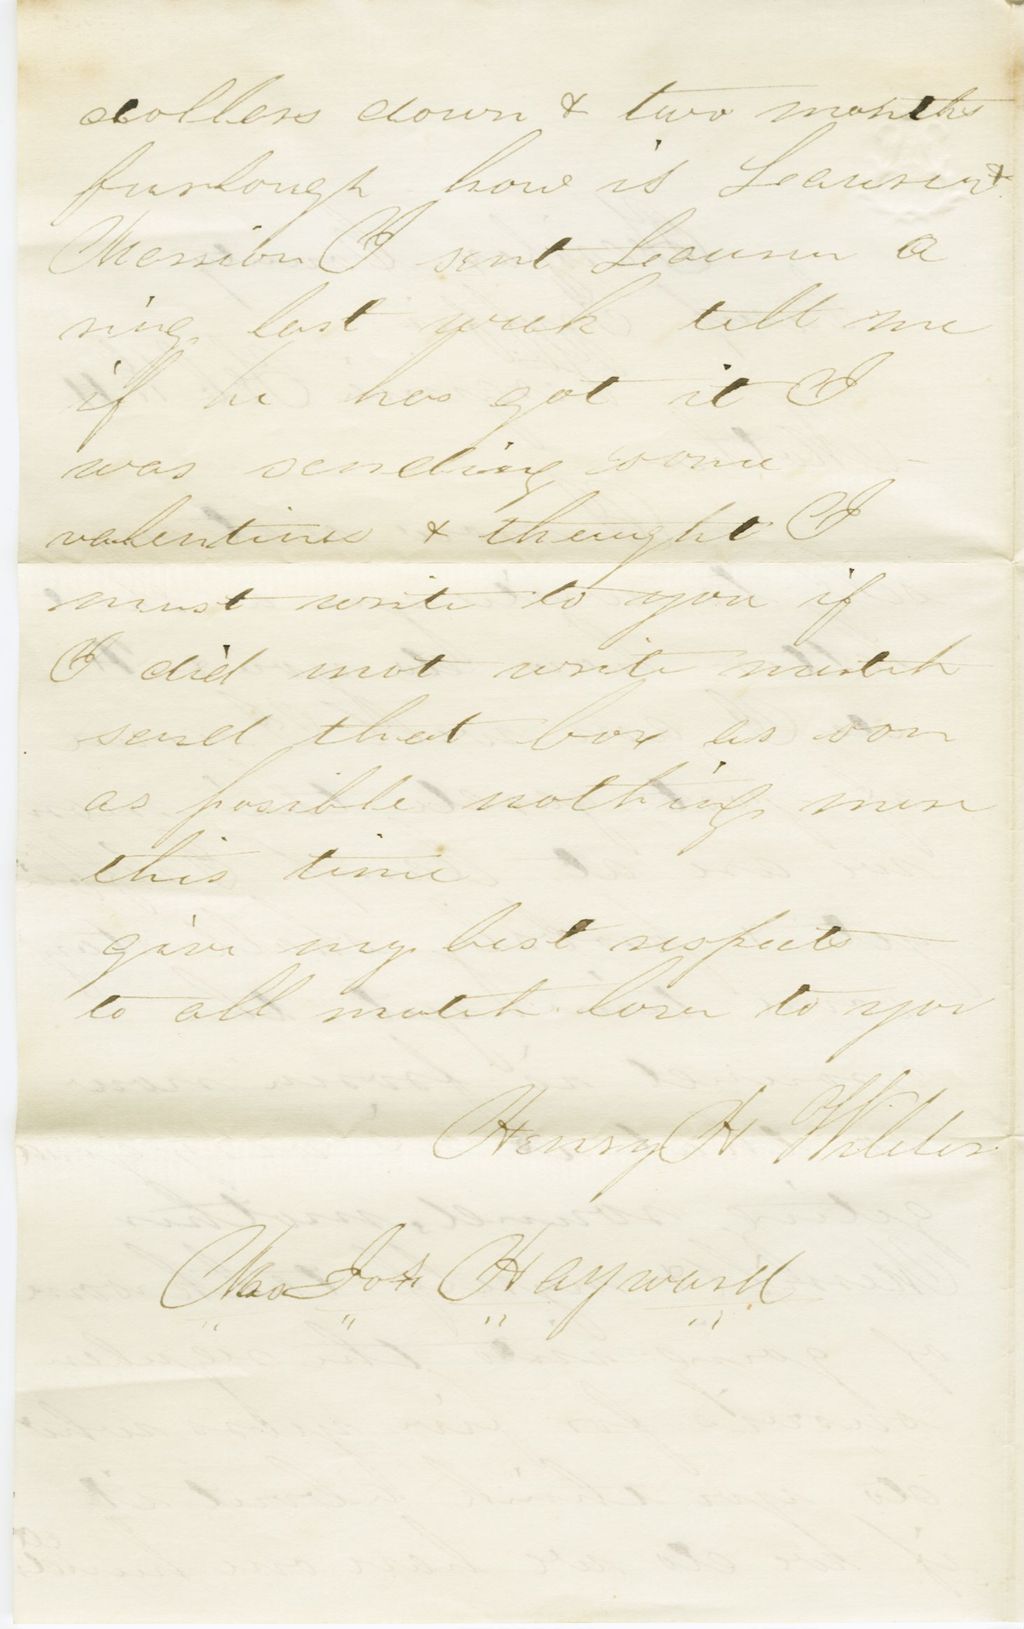 dollers down & two months
furlough how is Leauren &
Merrion I sent Leauren a
ring last week tell me
if he has got it I
was sending some
valentines & thought I
must write to you if
I did not write mutch
send that box as soon
as posible nothing more
this time
give my best respects
to all mutch love to you
Henry H Wilder
Mrs Jos Hayward